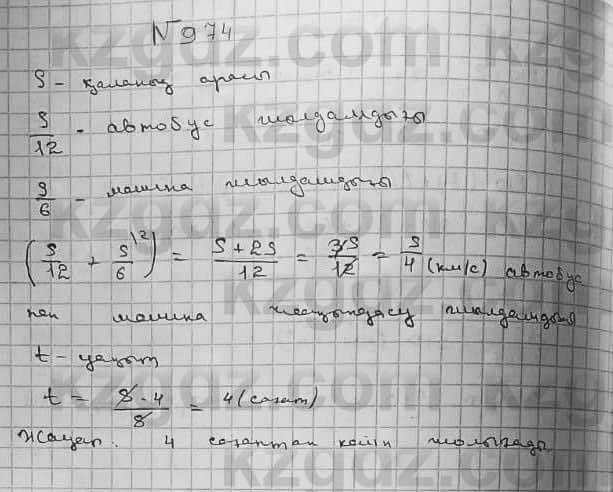 N974
S - қаланың арасы
S/12 - автобус жылдамдығы
S/6 - машина жылдамдығы
(S/12 + S/6 \2) = (S+2S)/12 = 3S/12 = S/4 (км/с) автобус
пен машина жылдамдығы
t - уақыт
t = S·4/S = 4 (сағат)
Жауап. 4 сағаттан кейін жолығады
kzgdz.com